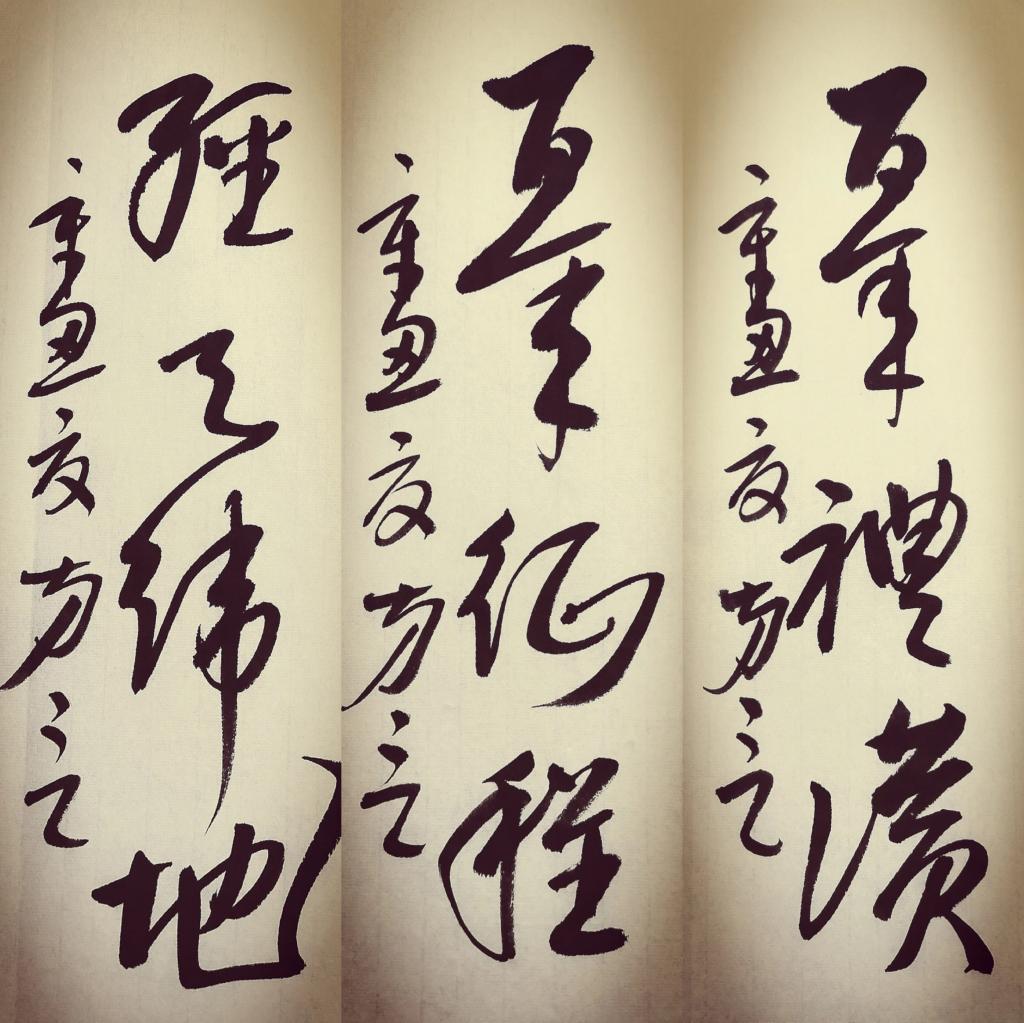 百年禮讚
辛丑夏方之
百年征程
辛丑夏方之
經天緯地
辛丑夏方之